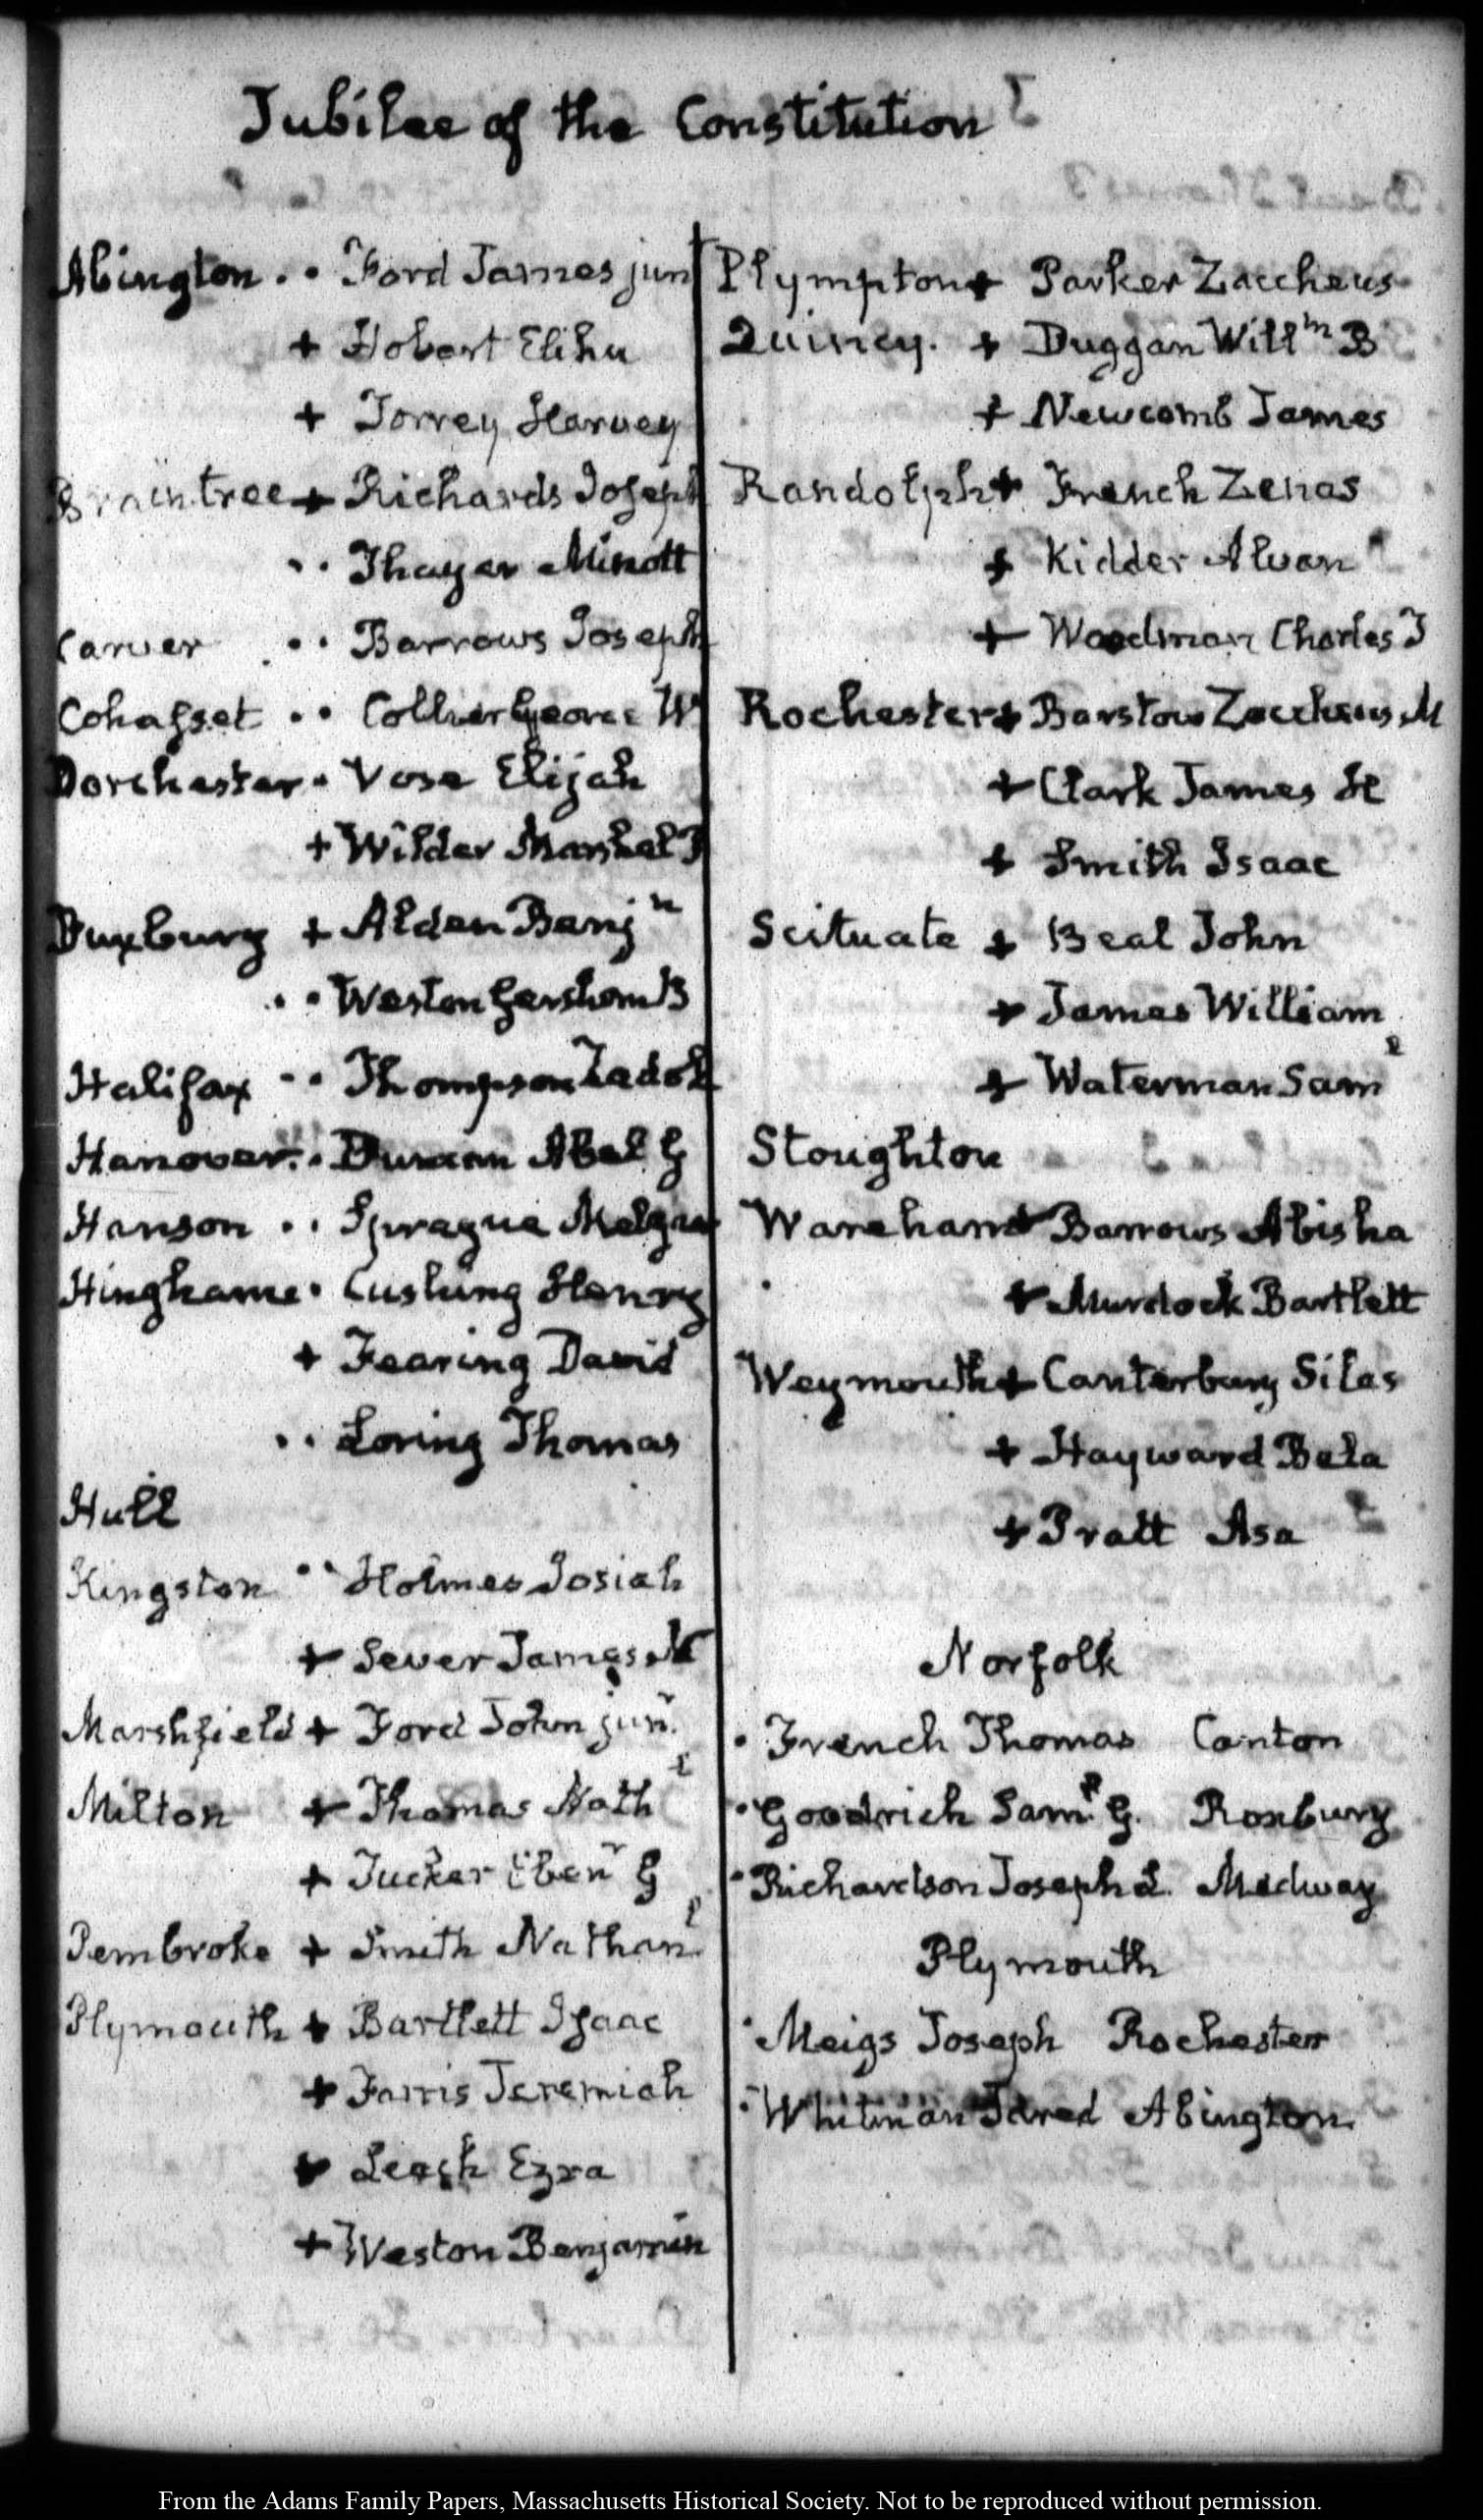 Jubilee of the Constitution
Abington . . Ford James jun
+ Hobart Elihu
+ Torrey Harvey
Braintree + Richards Joseph
. . Thayer Minott
Carver . . Barrows Joseph
Cohasset . . Collier George W
Dorchester . Vose Elijah
+ Wilder Marshal P
Duxbury + Alden Benjn
. . Weston Gershom B
Halifax . . Thompson Zadok
Hanover . . Duncan Abel G
Hanson . . Sprague
Hingham . Cushing Henry
+ Fearing David
. . Loring Thomas
Hull
Kingston . . Holmes Josiah
+ Sever James N
Marshfield + Ford John junr.
Milton + Thomas Nathl
+ Tucker Ebenr G
Pembroke + Smith Nathanl
Plymouth + Bartlett Isaac
+ Farris Jeremiah
+ Leach Ezra
+ Weston Benjamin
Plympton + Parker Zaccheus
Quincy. + Duggan Willm B
+ Newcomb James
Randolph + French Zenas
+ Kidder Alvan
+ Woodman Charles T
Rochester + Barstow Zaccheus M
+ Clark James H
+ Smith Isaac
Scituate + Beal John
+ James William
+ Waterman Saml
Stoughton
Wareham + Barrows Abisha
+ Murdock Bartlett
Weymouth + Canterbury Silas
+ Hayward Bela
+ Pratt Asa
Norfolk
. French Thomas Canton
. Goodrich Saml. G. Roxbury
. Richardson Joseph L. Medway
Plymouth
. Meigs Joseph Rochester
. Whitman Jared Abington.
From the Adams Family Papers, Massachusetts Historical Society. Not to be reproduced without permission.